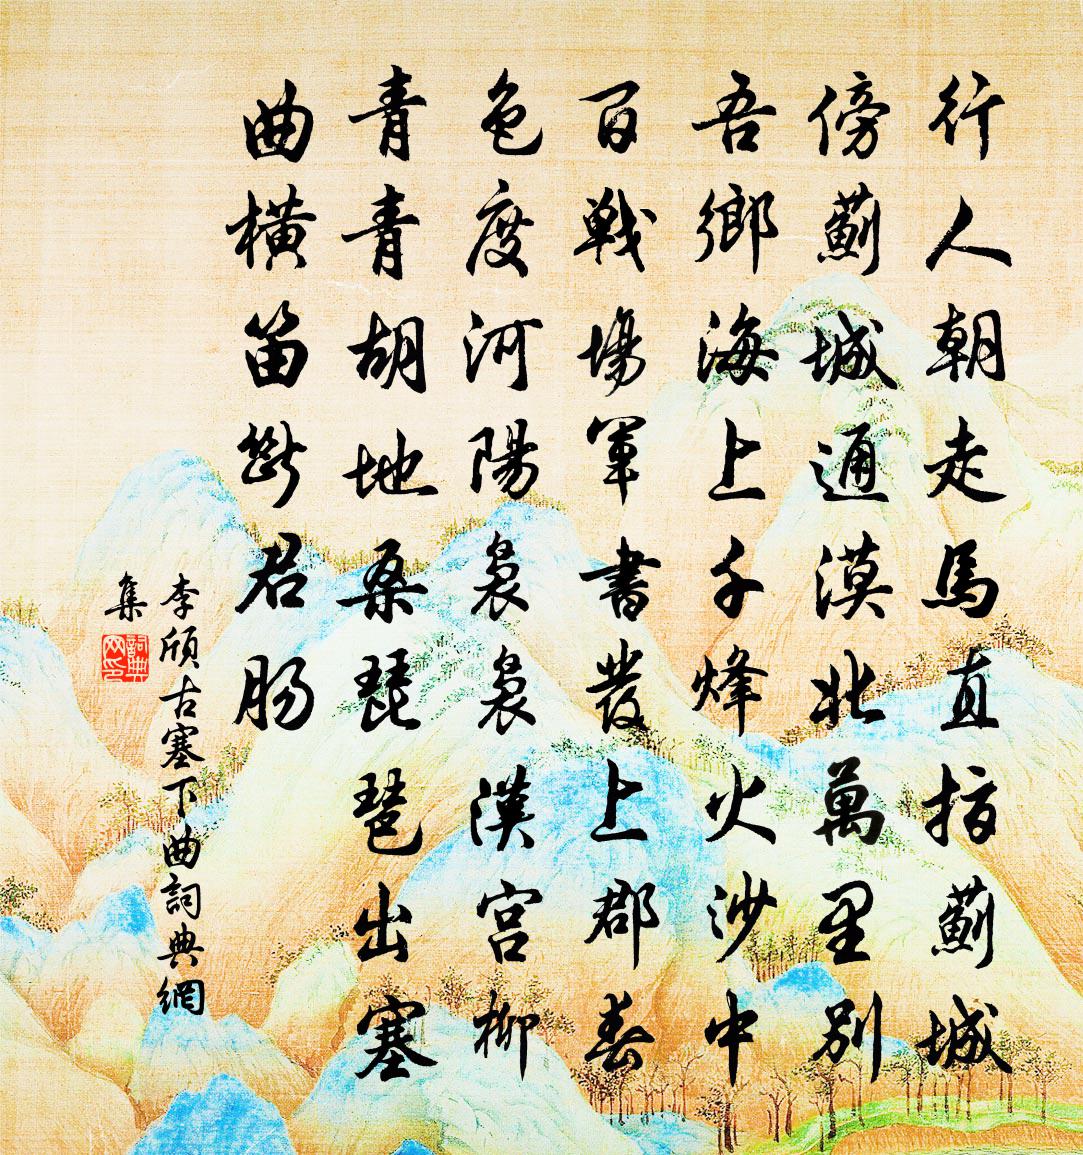 行人朝走馬直指薊城
傍薊城通漠北萬里別
吾鄉海上千烽火沙中
百戰場軍書發上郡春
色度河陽袅袅漢宮柳
青青胡地桑琵琶出塞
曲橫笛斷君腸
李頎古塞下曲詞典網
集
詞典
网印